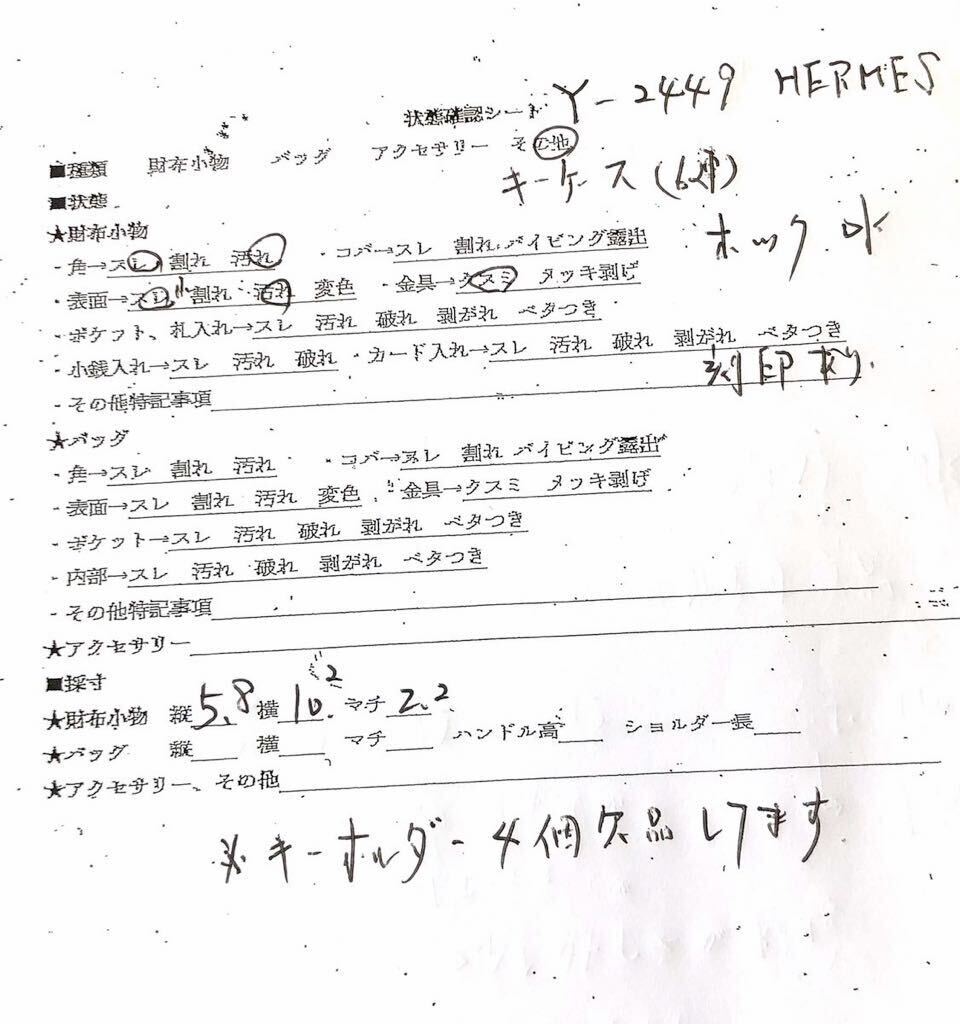 状態確認シート Y-2449 HERMES
■種類 財布小物 バッグ アクセサリー その他
キーケース(6連)
■状態
★財布小物
ホック 水
・角→スレ 割れ 汚れ ・コバ→スレ 割れ パイピング露出
・表面→スレ 小 割れ 汚れ 変色 ・金具→クスミ メッキ剥げ
・ポケット、札入れ→スレ 汚れ 破れ 剥がれ ベタつき
・小銭入れ→スレ 汚れ 破れ ・カード入れ→スレ 汚れ 破れ 剥がれ ベタつき
刻印有り.
・その他特記事項
★バッグ
・角→スレ 割れ 汚れ ・コバ→スレ 割れ パイピング露出
・表面→スレ 割れ 汚れ 変色 ・金具→クスミ メッキ剥げ
・ポケット→スレ 汚れ 破れ 剥がれ ベタつき
・内部→スレ 汚れ 破れ 剥がれ ベタつき
・その他特記事項
★アクセサリー
■採寸
★財布小物 縦5.8 横10.2 マチ2.2
★バッグ 縦 横 マチ ハンドル高 ショルダー長
★アクセサリー、その他
※キーホルダー4個欠品してます